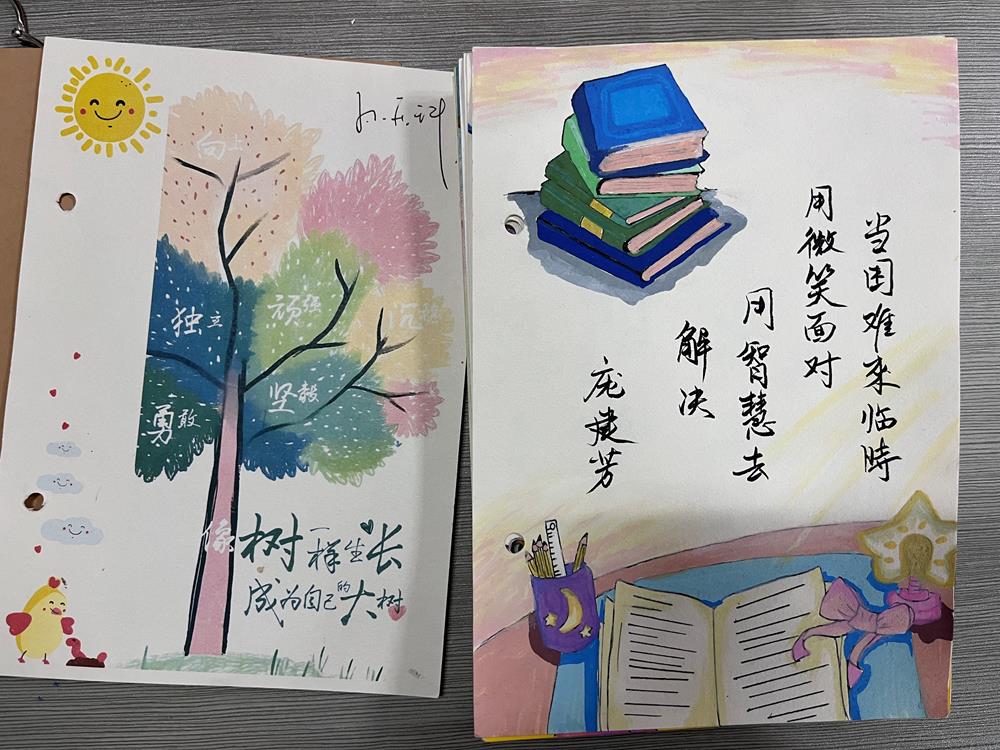 向上
顽强
沉稳
独立
坚毅
勇敢
像树一样生长
成为自己的大树
当困难来临時
用微笑面对
用智慧去
解决